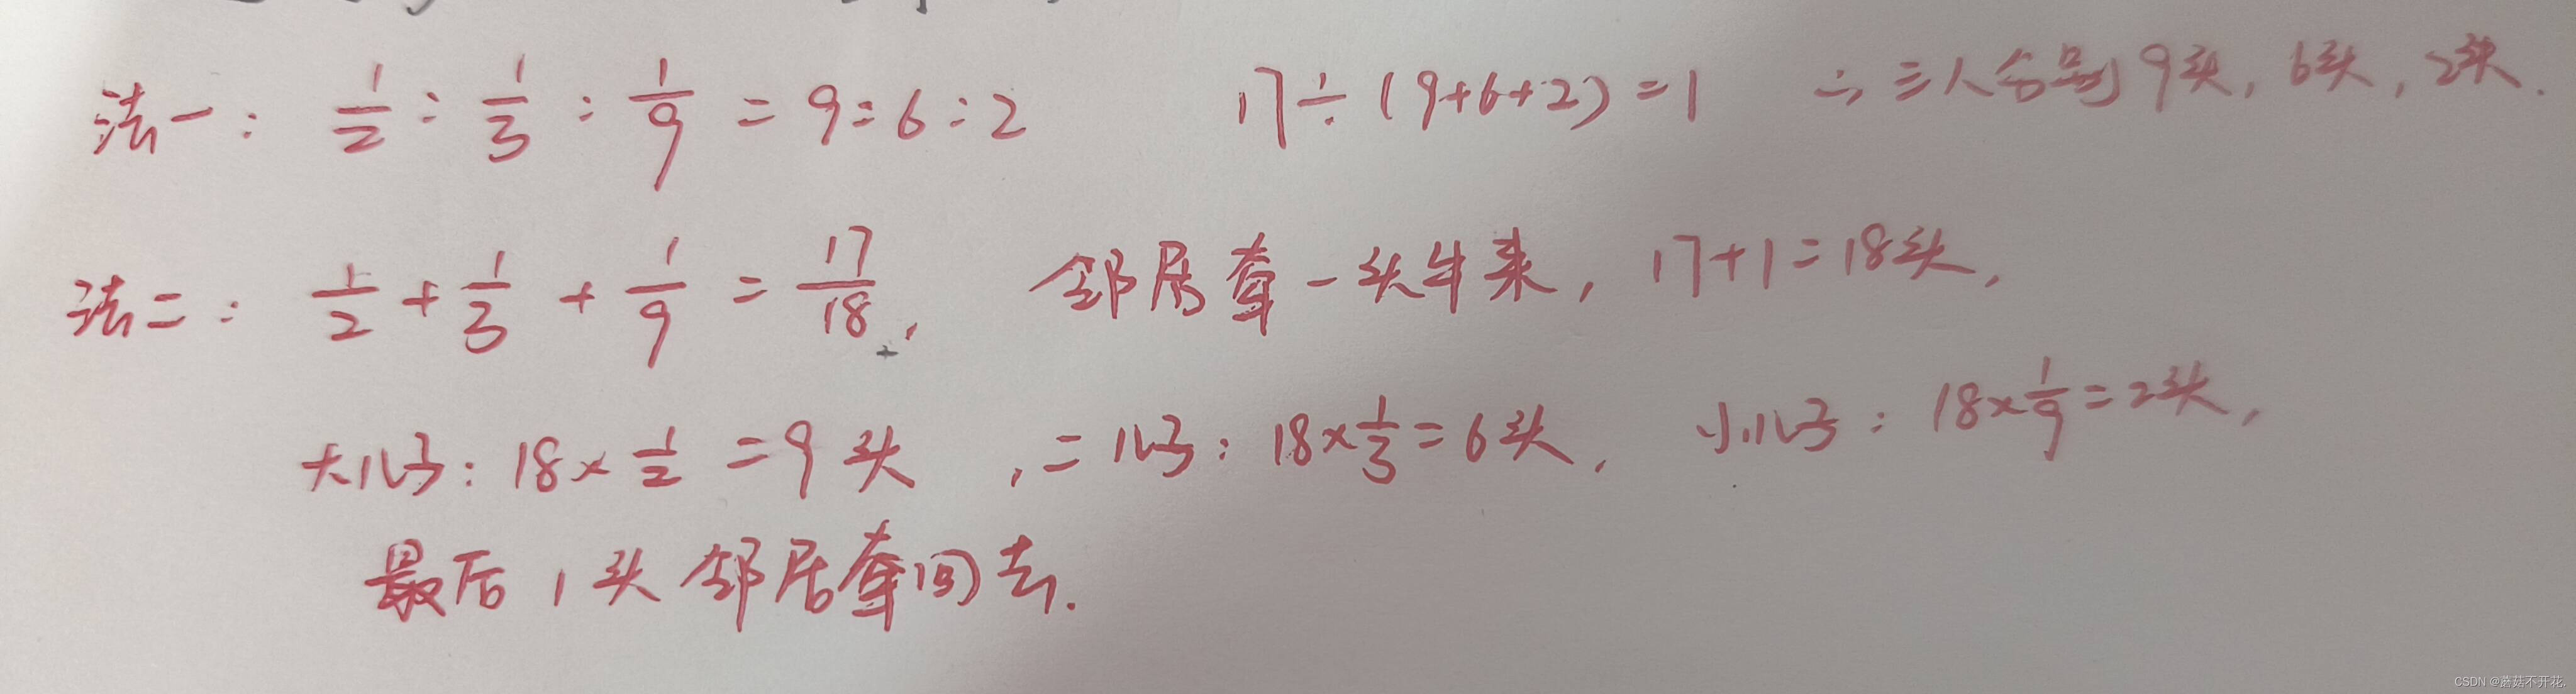 法一： 1/2 : 1/3 : 1/9 = 9:6:2 17÷(9+6+2)=1 ∴三人分别9头，6头，2头.
法二： 1/2 + 1/3 + 1/9 = 17/18， 邻居牵一头牛来，17+1=18头，
大儿子：18×1/2=9头，二儿子：18×1/3=6头，小儿子：18×1/9=2头，
最后1头邻居牵回去.
CSDN @蘑菇不开花.